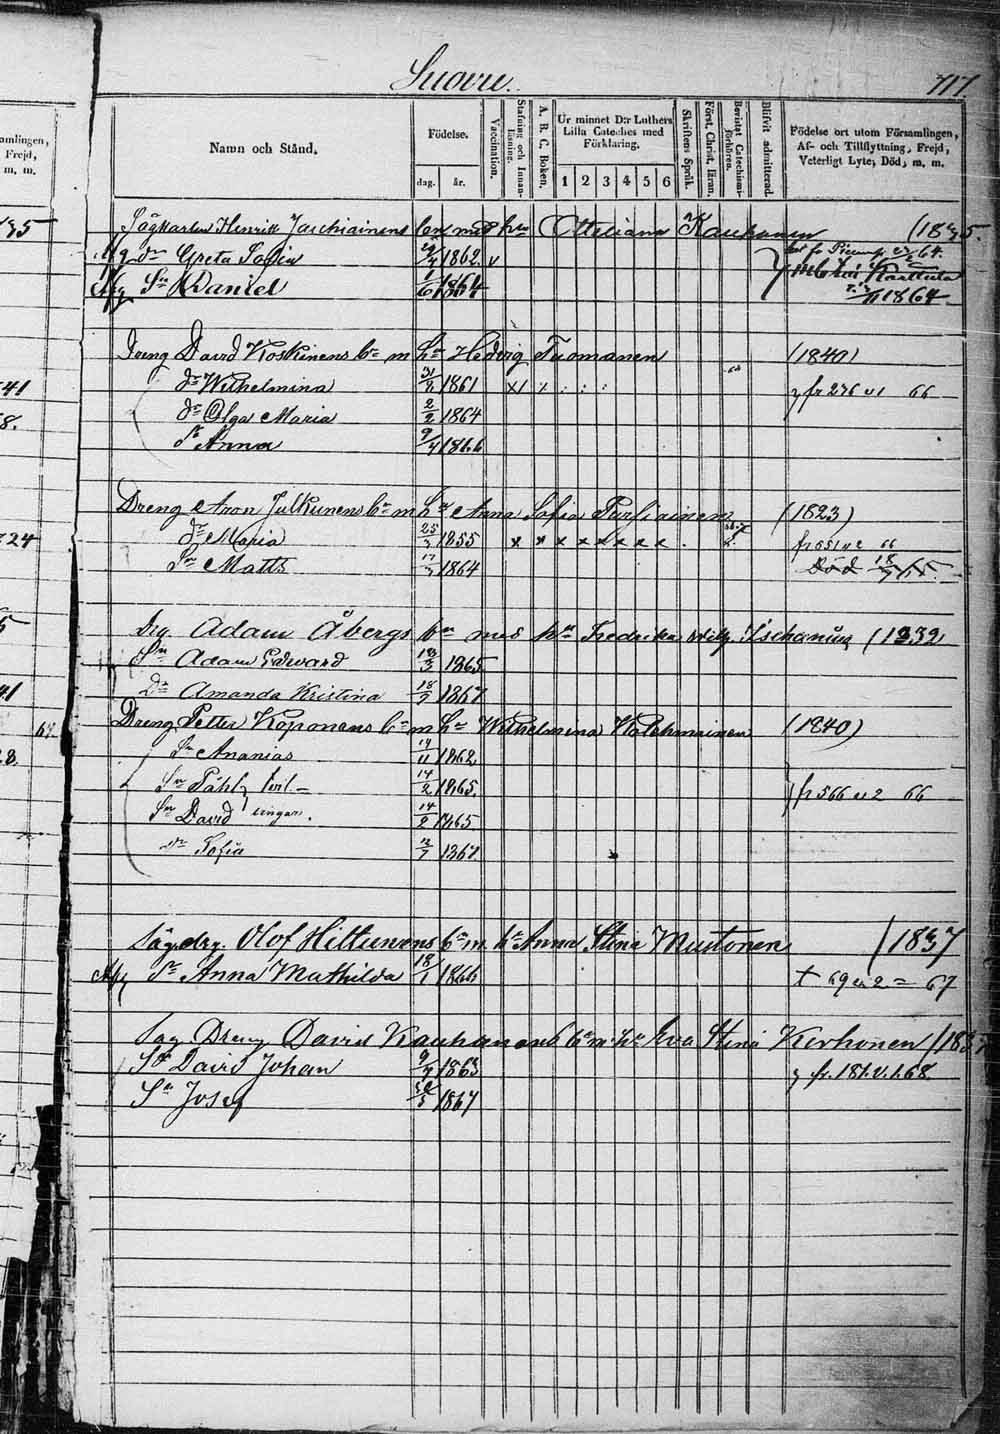 Suovu.
717.
amlingen,
Frejd,
m. m.
Namn och Stånd.
Födelse.
dag. år.
Vaccination.
Stafning och Innanläsning.
A. B. C. Boken.
Ur minnet D:r Luthers Lilla Cateches med Förklaring.
1 2 3 4 5 6
Skriftens Språk.
Först. Christ. läran.
Bevistat Catechismiförhören.
Blifvit admitterad.
Födelse ort utom Församlingen, Af- och Tillflyttning, Frejd, Veterligt Lyte, Död, m. m.
Sågkarlen Henrik Jaschiainens med hu Otteliana Kauhanen (1835.
Dr Greta Sofia 1862. v 64.
Sn Daniel 1864 Karttula
1864
Dreng David Koskinens bn m hu Hedvig Tuomanen (1840)
dr Wilhelmina 31/3 1861 fr 276 v 1 66
dr Olga Maria 2/2 1864
dr Anna 9/4 1866
Dreng Aron Julkunens bn m hu Anna Sofia Pursiainen (1823)
dr Maria 25/3 1855 x x x x x x x . fr 551 v 2 66
Sn Matts 17/3 1864 Död 18/
Drg. Adam Åbergs bn med hu Fredrika (1832)
Sn Adam Edward 13/3 1865
Dr Amanda Kristina 18/9 1867
Dreng Petter Koponens bn m hu Wilhelmina (1840)
Sn Ananias 19/11 1862
Sn Påhl 14/2 1865. fr 566 v 2 66
Sn David tvil-lingar. 14/2 1865
dr Sofia 1867
Såg.drg. Olof Hiltunens bn m. hu Anna Stina Mustonen (1837
dr Anna Mathilda 18/1 1866 + 69 v 2 = 67
Såg Dreng David Kauhanens bn m hu Eva Stina Kerhonen (183
Sn David Johan 9/7 1863 fr. 181.v.1.68.
Sn Josef 1867
35
41
8.
24
5
41
67
28.